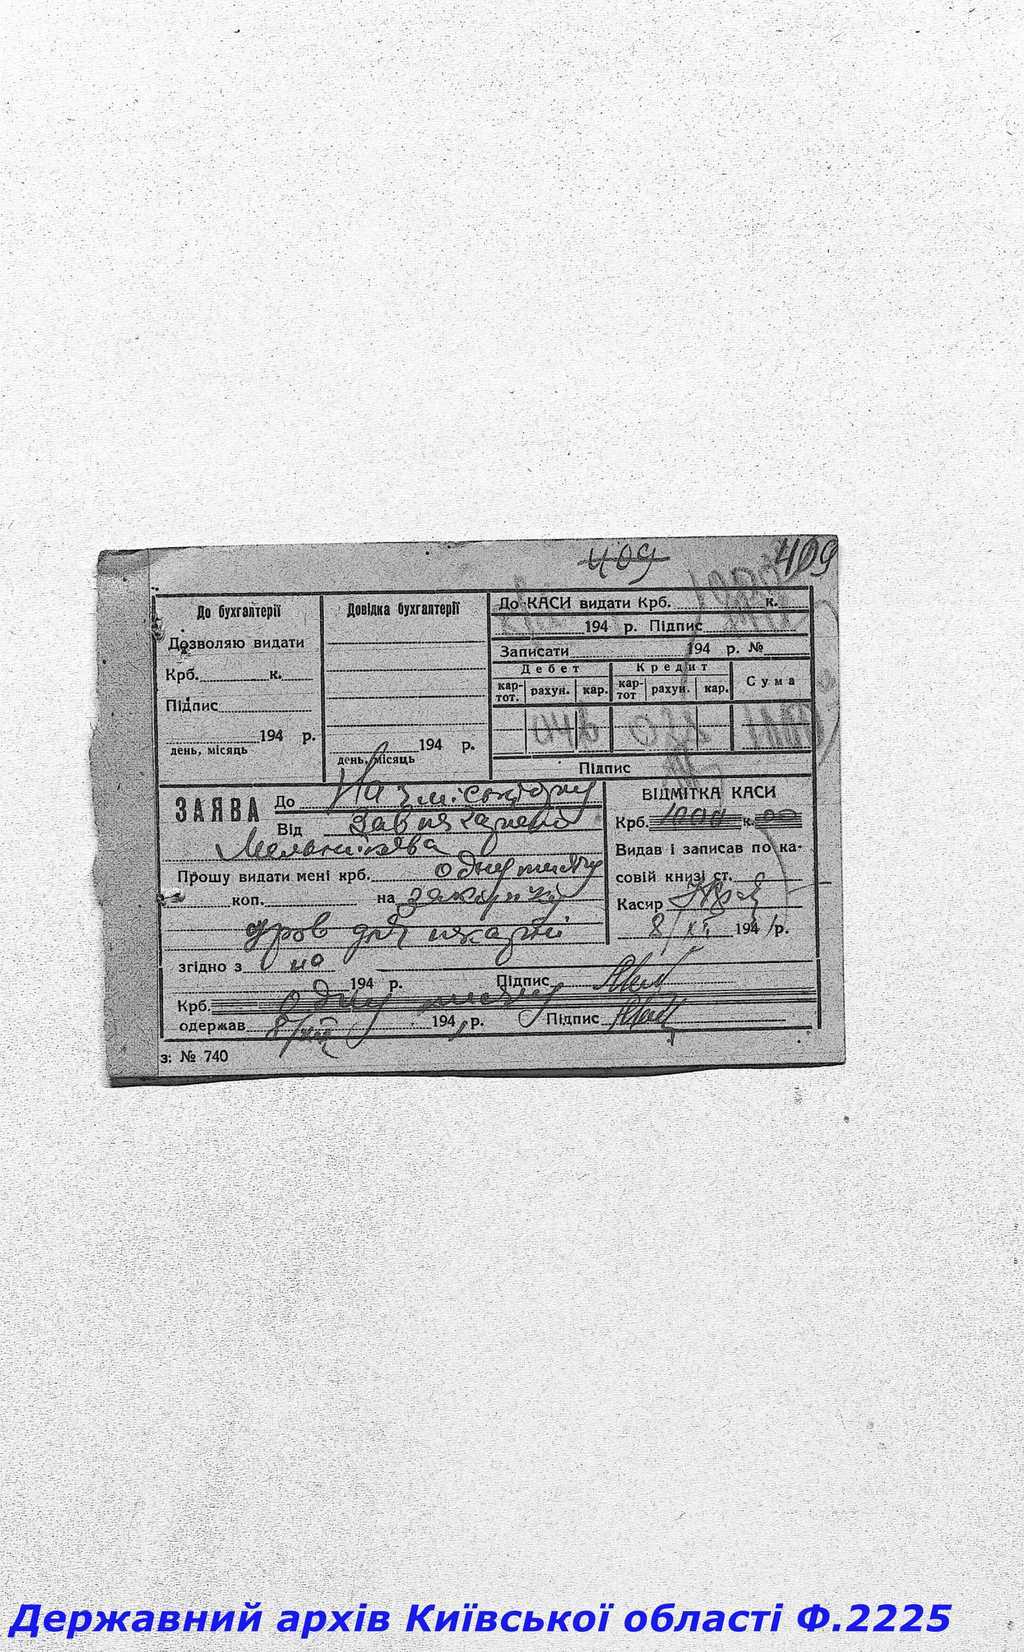 409 409
До бухгалтерії
Дозволяю видати
Крб. к.
Підпис
194 р.
день, місяць
Довідка бухгалтерії
194 р.
день, місяць
До КАСИ видати Крб. к.
194 р. Підпис
Записати 194 р. №
Дебет Кредит Сума
кар-тот. рахун. кар. кар-тот рахун. кар.
Підпис
ЗАЯВА До
Від Зав пекарні
Мельникова
Прошу видати мені крб. одну тисячу
коп. на
дров для пекарні
згідно з
194 р. Підпис
Крб. Одну тисячу
одержав 8/ 194 р. Підпис
ВІДМІТКА КАСИ
Крб. 1000 к. 00
Видав і записав по ка-
совій книзі ст.
Касир
8/XI 1941 р.
з: № 740
Державний архів Київської області Ф.2225